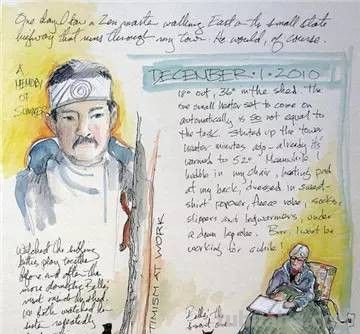 One day I saw a Zen master walking East on the small state
highway that runs through my town. He would, of course.
A
MEMORY
OF
SUMMER
DECEMBER · 1 · 2010
18° out, 36° in the shed. the
one small heater set to come on
automatically is so not equal to
the task. Started up the tower
heater minutes ago - already it's
warmed to 52°. Meanwhile I
huddle in my chair, heating pad
at my back, dressed in sweat-
shirt, fleece robe, socks,
slippers and legwarmers, under
a down lap robe. Brr, I won't be
working for a while!
Watched the sibling
kitties play together
before and after the
more
most outside the shed.
We both watched
repeatedly
TIMISM AT WORK
the
smart one